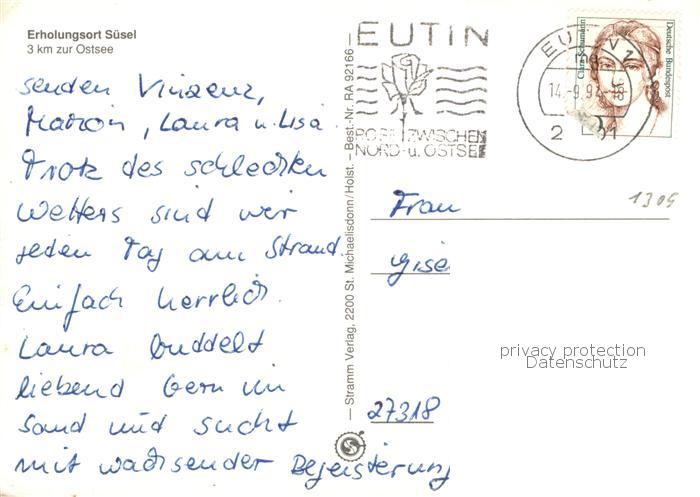 Erholungsort Süsel
3 km zur Ostsee
senden Vinzenz,
Marion, Laura u. Lisa.
Trotz des schlechten
Wetters sind wir
jeden Tag am Strand.
Einfach herrlich.
Laura buddelt
liebend gern im
Sand und sucht
mit wachsender Begeisterung
Stramm Verlag, 2200 St. Michaelisdonn/Holst. — Best.-Nr. RA 92166
EUTIN
ROSE ZWISCHEN
NORD- u. OSTSEE
EUTIN 1
14.-9.92-18
2
Clara Schumann
Deutsche Bundespost
1309
Frau
Gise
27318
privacy protection
Datenschutz